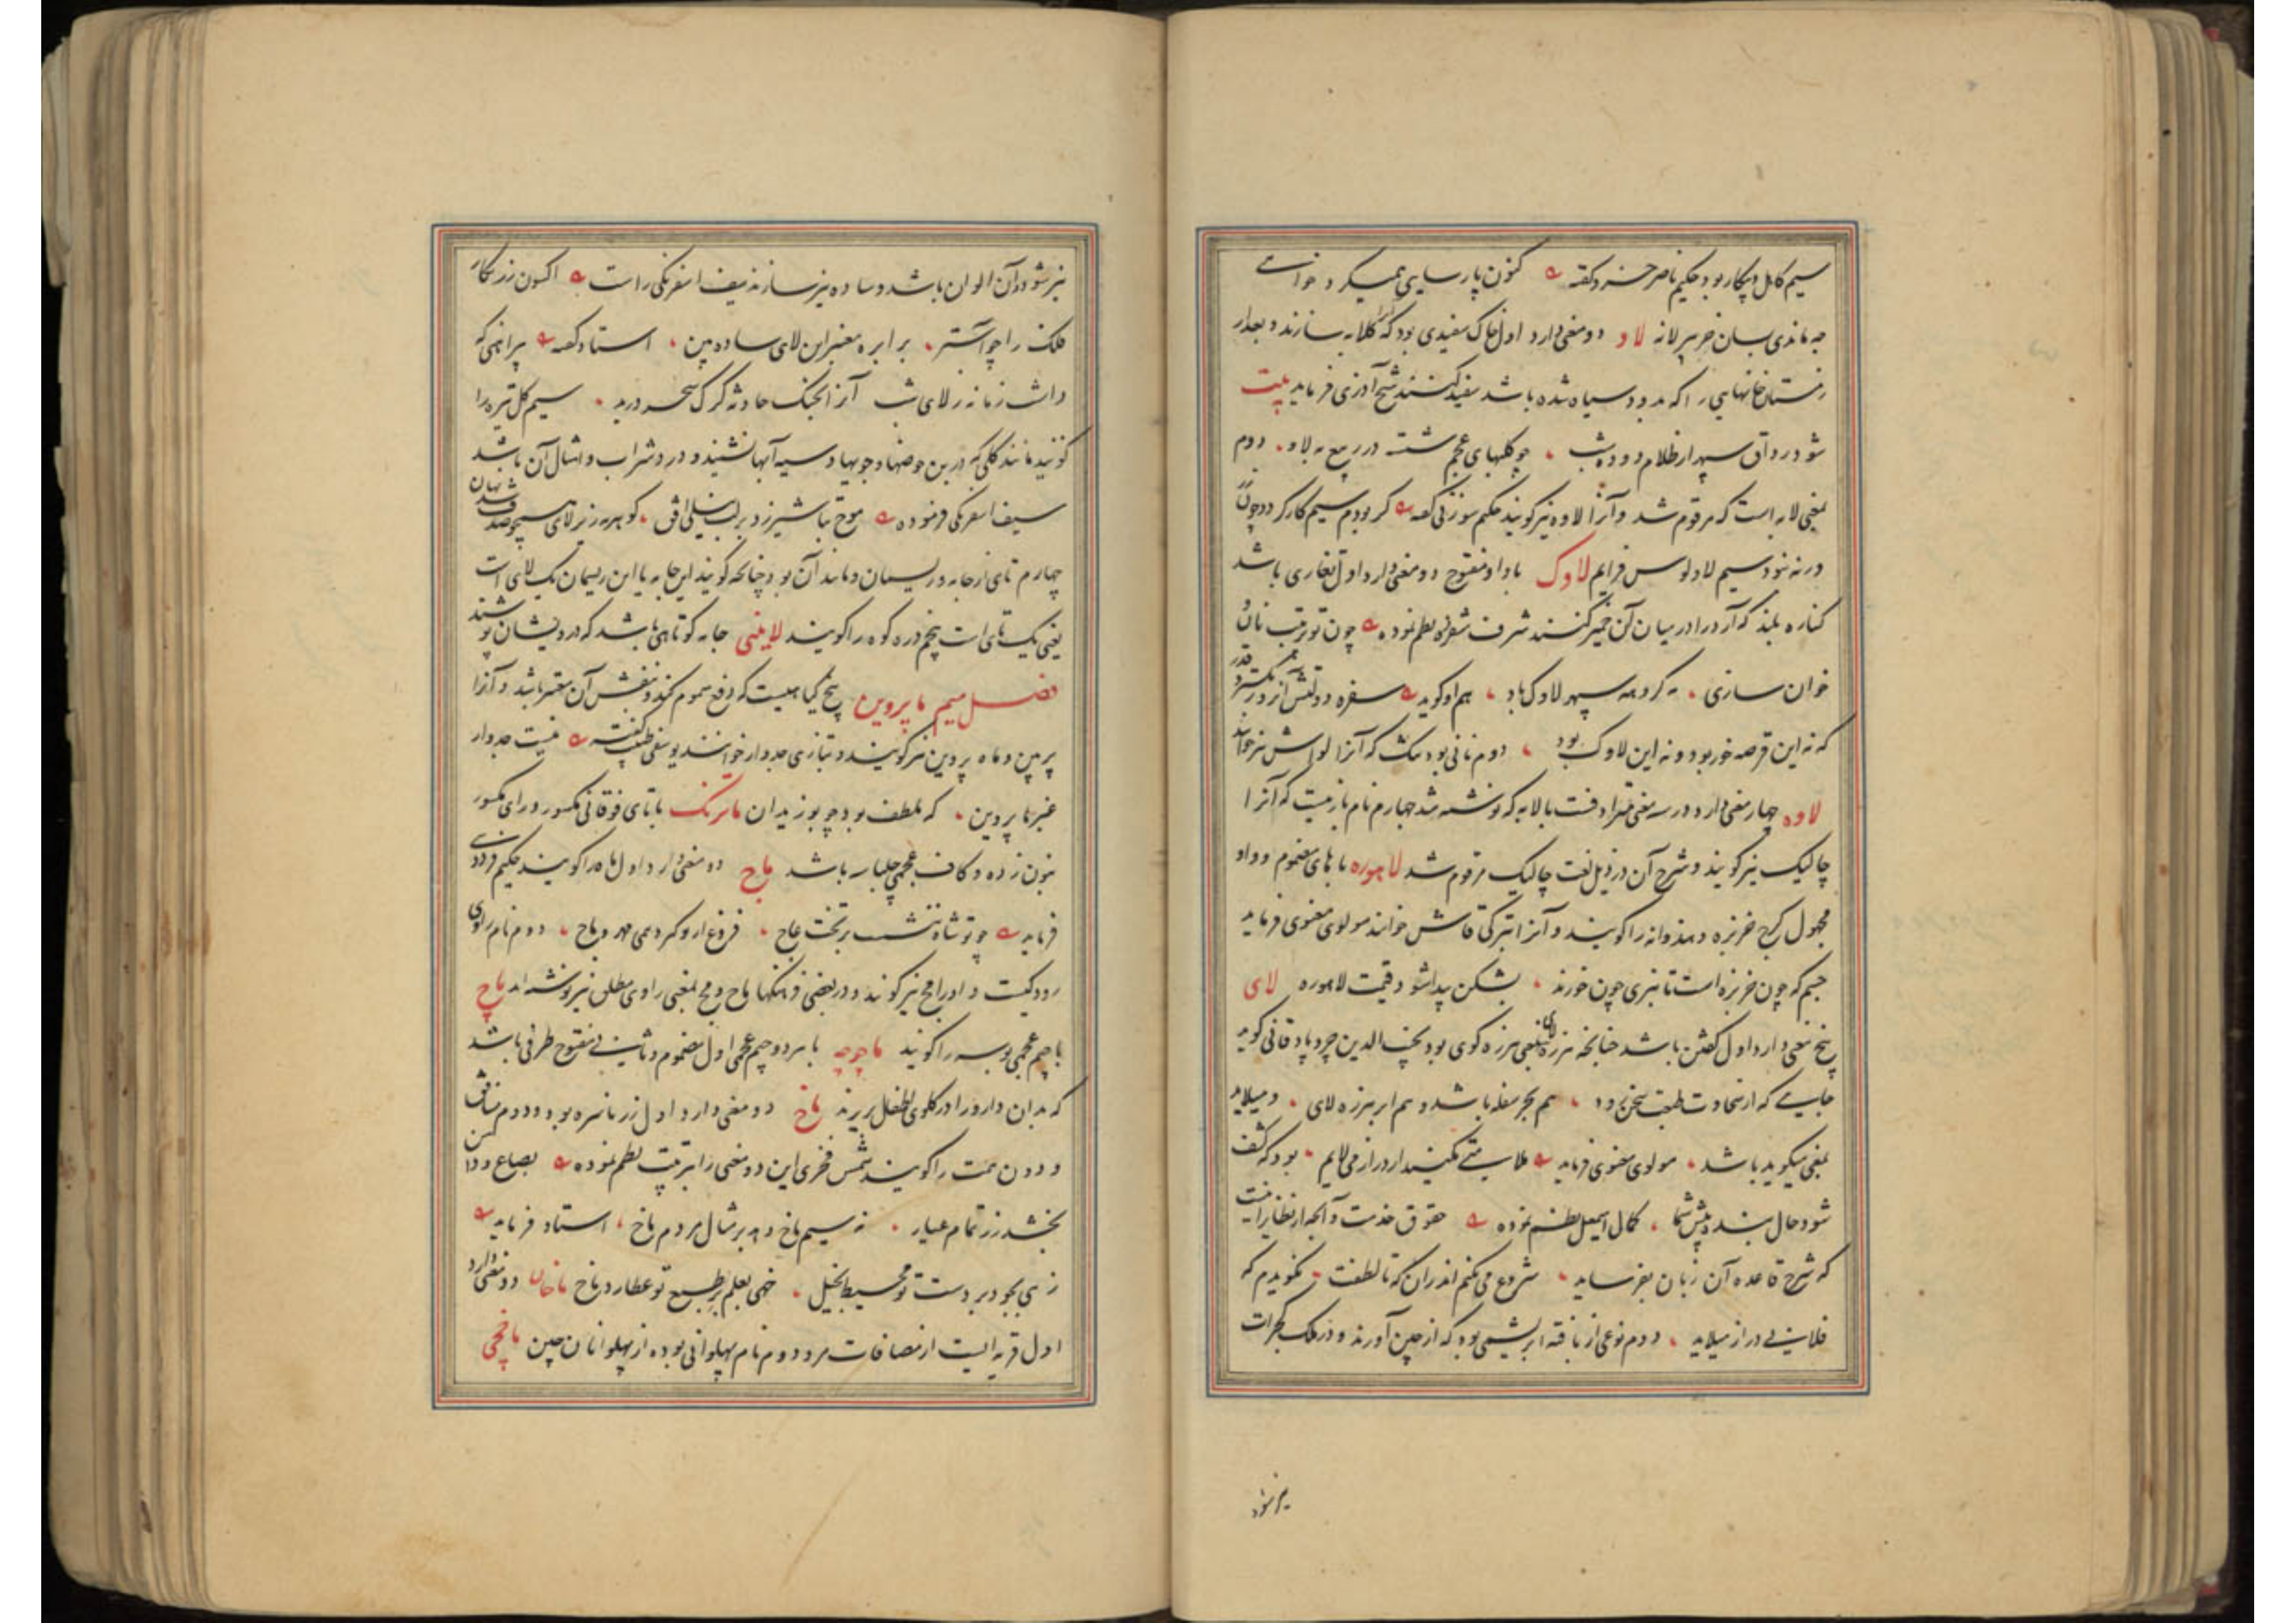 سیم کاهل و بیکار بود حکیم ناصر خسرو گفته کنون پارسایی همیکرد خواست
چه ماندی بسان خر پیر لانه لاو دو معنی دارد اول خاک سفیدی بود که گلابه سازند و بعد از
زمستان خانهایی را که بدود سیاه شده باشد سفید کنند شیخ آذری فرماید بیت
شود رواق سپهر از ظلام دوده شب چو کلبهای عجم شسته در ربیع به لاو دوم
بمعنی لابه است که مرقوم شد و آنرا لاوه نیز گویند حکیم سوزنی گفته کر بودم سیم کار کردد چون
ور نه نبود سیم لاد لوس فرایم لاوک با واو مفتوح دو معنی دارد اول تغاری باشد
کناره بلند که آرد را در میان آن خمیر کنند شرف شفروه نظم نموده چون تو ترتیب نان و
خوان سازی کرد مه سپهر لاوک باد هم او گوید سفره دولتش آنروز بگسترد قدر
که نه این قرصه خور بود و نه این لاوک بود دوم نانی بود تنک که آنرا لواش نیز خوانند
لاوه چهار معنی دارد در سه معنی مترادفست با لابه که نوشته شد چهارم نام بازیست که آنرا
چالیک نیز گویند و شرح آن در ذیل لغت چالیک مرقوم شد لاهوره با های مضموم و واو
مجهول کرج خربزه و هندوانه را گویند و آنرا بترکی قاش خوانند مولوی معنوی فرماید
جسم که چون خربزه است تا نبری چون خورند بشکن پیدا شود قیمت لاهوره لای
پنج معنی دارد اول گفتن باشد چنانچه هرزه لای بمعنی هرزه گوی بود نجیب الدین جربادقانی گوید
جایی که از سخاوت طبعت سخن رود هم بحر سفله باشد و هم ابر هرزه لای و میلاید
بمعنی میگوید باشد مولوی معنوی فرماید ملامتی مکنید ار دراز می لایم بود که کشف
شود حال بنده پیش شما کمال اسمعیل نظم نموده حقوق خدمت و آنچه از نظایر آنست
که شرح قاعده آن زبان بفرساید شروع می نکنم اندر آن که تا لطفت نگویدم که
فلانی دراز میلاید دوم نوعی از بافته ابریشمی بود که از چین آورند و در ملک گجرات
نیز شود
نیز شود و آن الوان باشد و ساده نیز سازند سیف اسفرنگی راست اکسون زرنگار
فلک را چو آستر برابره معنبر این لای ساده بین استاد گفته پیراهنی که
داشت زمانه ز لای شب آنرا بچنگ حادثه گرگ سحر درید سیم گل تیره را
گویند مانند گلی که در بن حوضها و جویها و سیه آبها نشیند و درد شراب و امثال آن باشد
سیف اسفرنگی فرموده موج تباشیر زد بر لب نیلی افق گوهر زیر لای همچو صدف شد نهان
چهارم تای از جامه و ریسمان و مانند آن بود چنانچه گویند این جامه یا این ریسمان یک لای است
یعنی یک تای است پنجم دره کوه را گویند لایینی جامه کوتاهی باشد که درویشان پوشند
فصل میم ماپروین بیخ گیاهیست که دفع سموم کند و بنفش آن معتبر باشد و آنرا
پرمین و ماه پروین نیز گویند و بتازی جدوار خوانند یوسفی طبیب گفته نیست جدوار
غیر ماپروین که بلطف بود چو بوزیدان ماترنگ با تای فوقانی مکسور و رای مکسور
بنون زده و کاف عجمی چلپاسه باشد ماج دو معنی دارد اول ماه را گویند حکیم فردوسی
فرماید چو تو شاه ننشست بر تخت عاج فروغ از تو گیرد همی مهر و ماج دوم نام راوی
رودکیست و او را مج نیز گویند و در بعضی فرهنگها ماج و مج بمعنی راوی مطلق نیز نوشته اند ماچ
با جیم عجمی بوسه را گویند ماچوچه با هر دو جیم عجمی اول مضموم و ثانی مفتوح ظرفی باشد
که بدان دارو را در گلوی اطفال بریزند ماخ دو معنی دارد اول زر ناسره بود و دوم منافق
و دون همت را گویند شمس فخری این دو معنی را بترتیب نظم نموده بصاع و دامن
بخشد زر تمام عیار نه سیم ماخ دهد بر مثال مردم ماخ استاد فرماید
زهی بجود بر دست تو محیط بخیل خهی بعلم بر طبع تو عطارد ماخ ماخان دو معنی دارد
اول قریه ایست از مضافات مرو دوم نام پهلوانی بوده از پهلوانان چین ماخچی